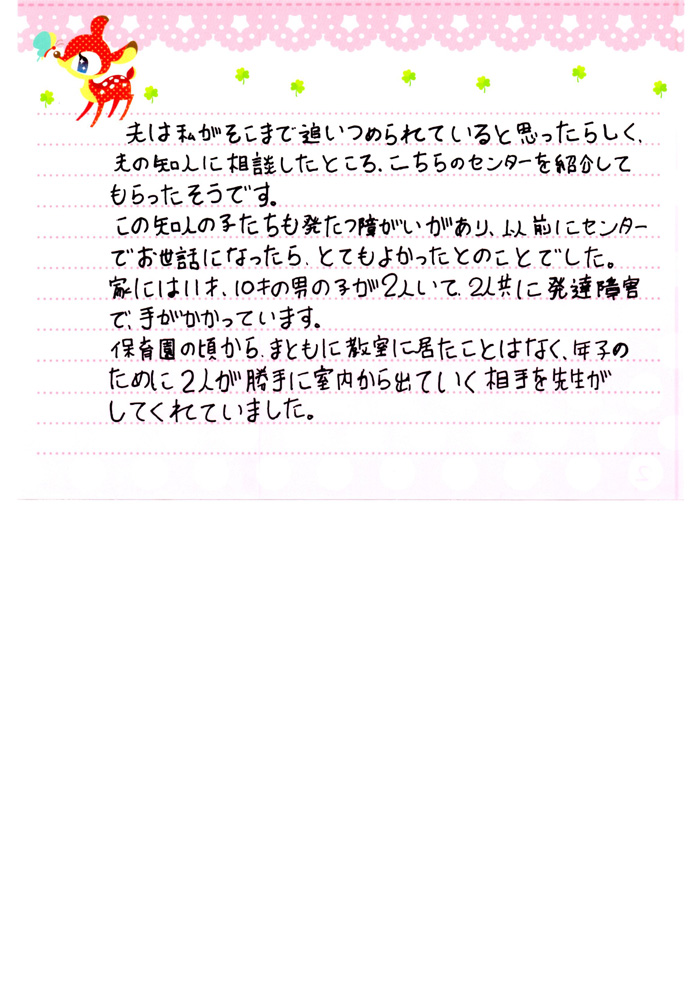 夫は私がそこまで追いつめられていると思ったらしく、
夫の知人に相談したところ、こちらのセンターを紹介して
もらったそうです。
この知人の子たちも発たつ障がいがあり、以前にセンター
でお世話になったら、とてもよかったとのことでした。
家には11才、10才の男の子が2人いて、2人共に発達障害
で、手がかかっています。
保育園の頃から、まともに教室に居たことはなく、年子の
ために2人が勝手に室内から出ていく相手を先生が
してくれていました。